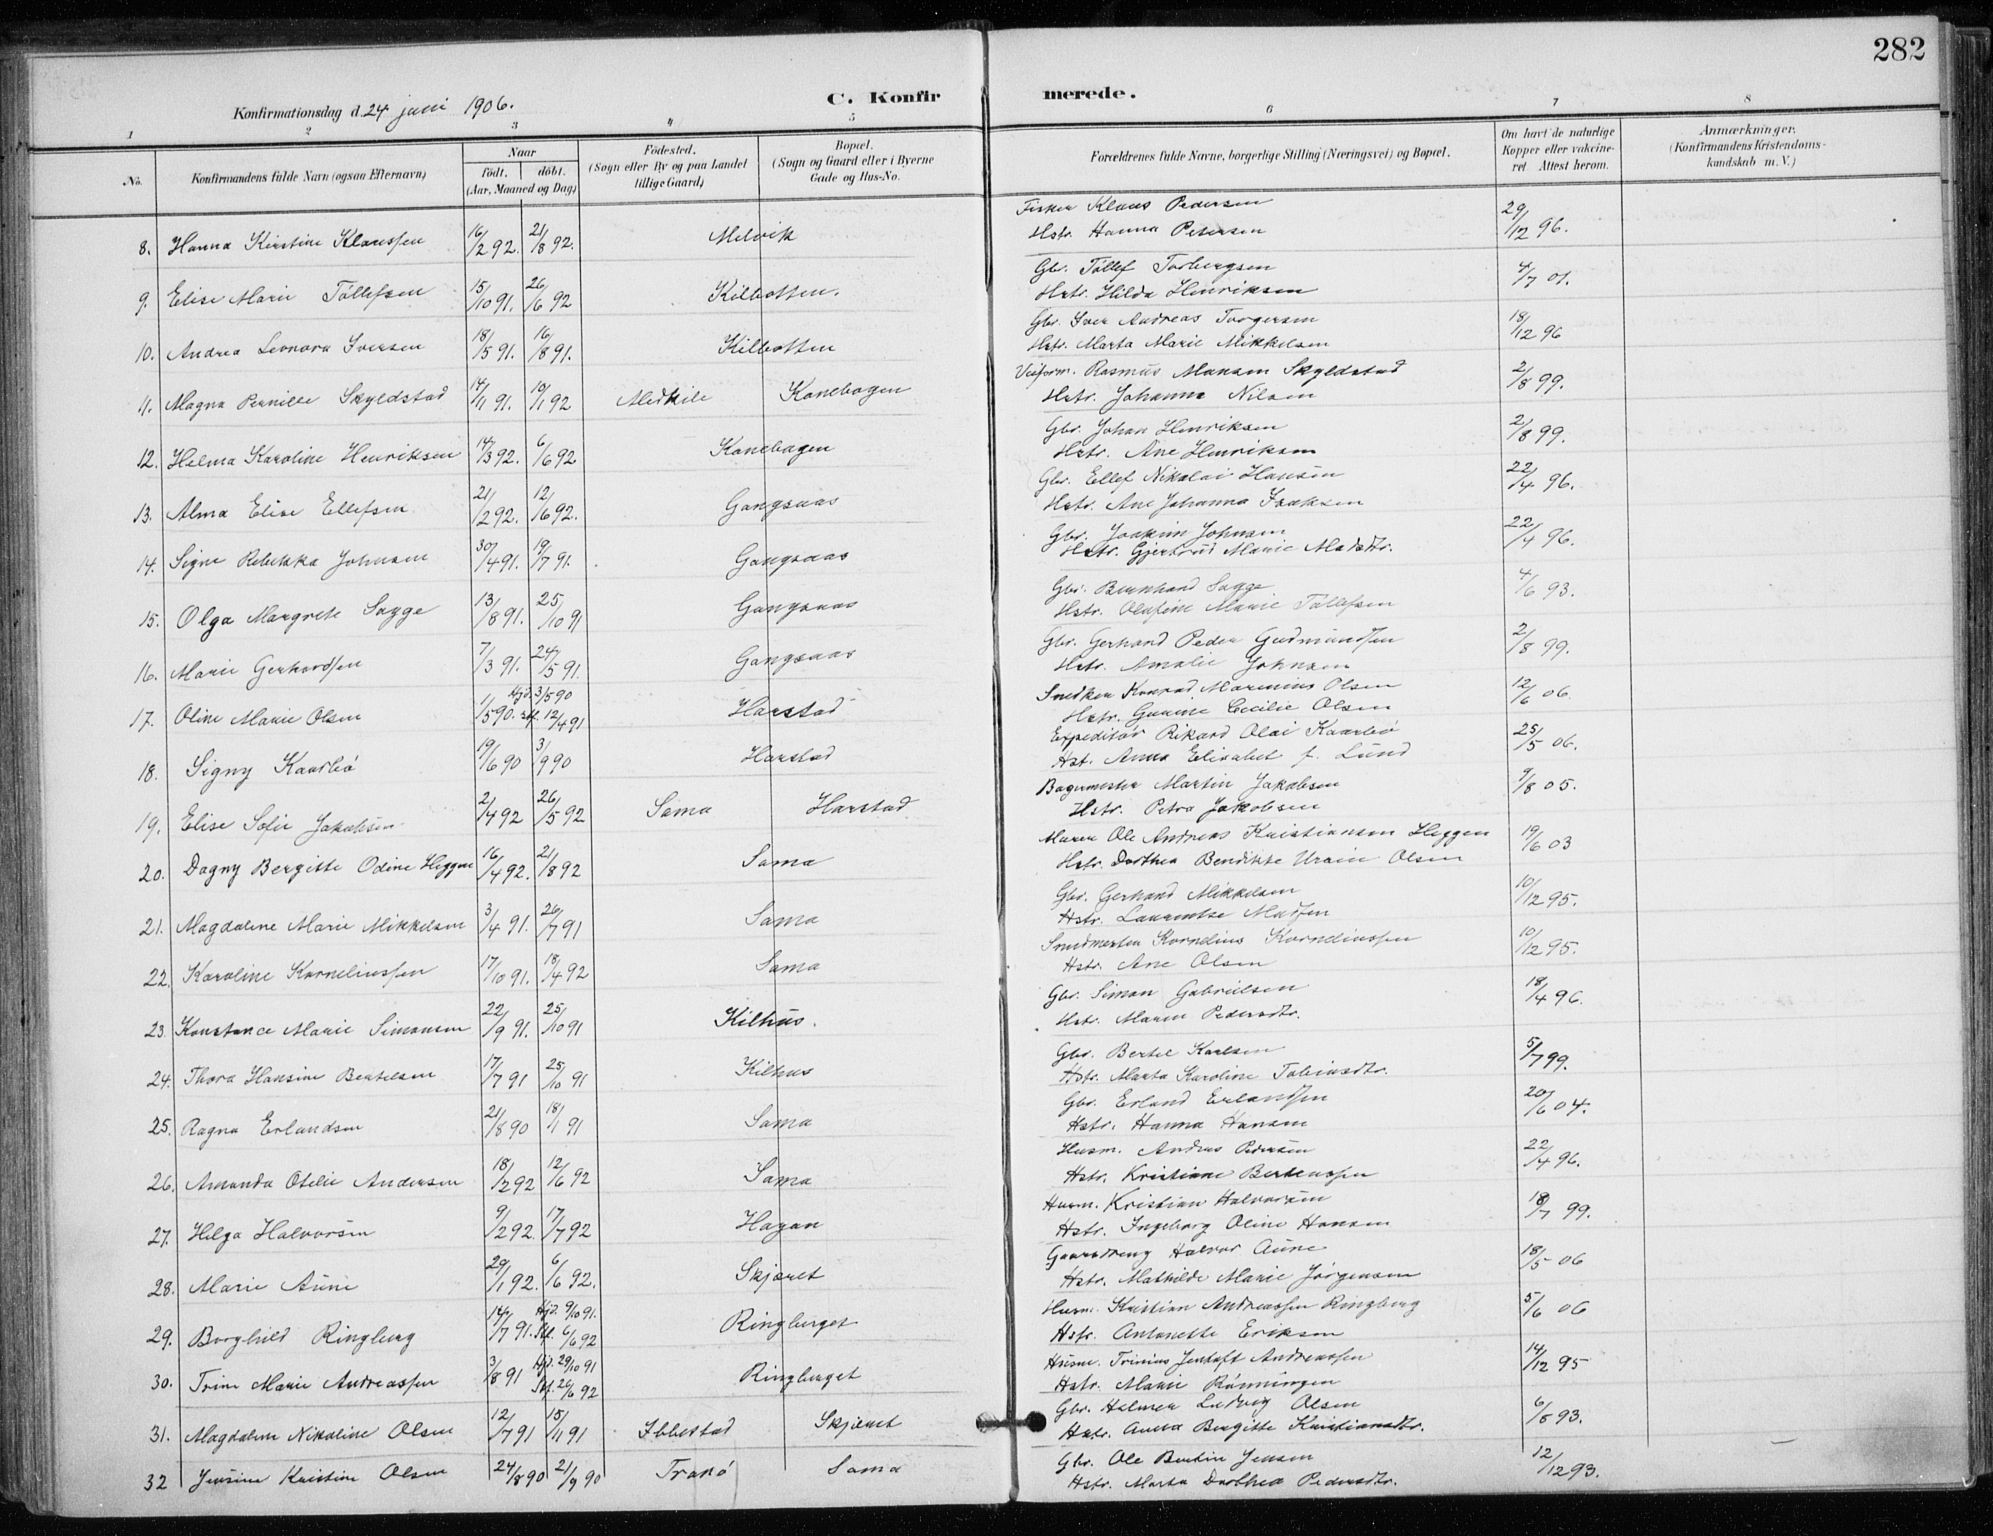 282
Konfirmationsdag d. 24 juni 1906.
C. Konfirmerede.
1 2 3 4 5 6 7 8
No. Konfirmandens fulde Navn (ogsaa Efternavn) Naar födt. döbt. (Aar, Maaned og Dag) Födested. (Sogn eller By og paa Landet tillige Gaard) Bopæl. (Sogn og Gaard eller i Byerne Gade og Hus-No. Forældrenes fulde Navne, borgerlige Stilling (Næringsvei) og Bopæl. Om havt de naturlige Kopper eller vakcineret Attest herom. Anmærkninger. (Konfirmandens Kristendomskundskab m. V.)
Fisker Klaus Pedersen
8. Hanna Kirstine Klaussen 16/2 92. 21/8 92. Melvik Hstr. Hanna Petersen 29/12 96.
Gbr. Töllef Torbergsen
9. Elise Marie Töllefsen 15/10 91. 26/6 92 Kilbotten. Hstr. Hilda Henriksen 4/7 01.
Gbr. Iver Andreas Torgersen
10. Andrea Leonora Iversen 18/5 91. 16/8 91. Kilbotten Hstr. Marta Marie Mikkelsen 18/12 96
Veiform. Rasmus Monsen Skyldstad
11. Magna Pernille Skyldstad 14/11 91. 10/1 92 Medkile Kanebogen Hstr. Johanna Nilsen 2/8 99.
Gbr. Johan Henriksen
12. Helma Karoline Henriksen 14/3 92. 6/6 92 Kanebogen Hstr. Ane Henriksen 2/8 99.
Gbr. Ellef Nikolai Hansen
13. Alma Elise Ellefsen 21/2 92. 12/6 92. Gangsaas Hstr. Ane Johanna Isaksen 22/4 96.
Gbr. Joakim Johnsen
14. Signe Rebekka Johnsen 30/4 91. 19/7 91. Gangsaas Hstr. Gjertrud Marie Madsdtr. 22/4 96.
Gbr. Bernhard Sagge
15. Olga Margrete Sagge 13/8 91. 25/10 91 Gangsaas Hstr. Olufine Marie Töllefsen 4/6 93.
Gbr. Gerhard Peder Gudmundsen
16. Marie Gerhardsen 7/3 91. 24/5 91. Gangsaas Hstr. Amalie Johnsen 2/8 99.
Snedker Konrad Marenius Olsen
17. Oline Marie Olsen 1/5 90. Hjd. 3/5 90 stf. 12/4 91 Harstad Hstr. Gunine Cecilie Olsen 12/6 06.
Expeditör Rikard Olai Kaarbö
18. Signy Kaarbö 19/6 90 3/9 90 Harstad Hst. Anna Elisabet f. Lund 25/5 06.
Bagermester Martin Jakobsen
19. Elise Sofie Jakobsen 2/4 92 26/5 92 Sama Harstad Hstr. Petra Jakobsen 9/8 05.
Murer Ole Andreas Kristiansen Heggen
20. Dagny Bergitte Odine Heggen 16/4 92. 21/8 92 Sama Hstr. Dorthea Bendikke Urain Olsen 19/6 03
Gbr. Gerhard Mikkelsen
21. Magdalene Marie Mikkelsen 3/4 91. 26/7 91 Sama Hstr. Laurentse Madsen 10/12 95.
Smedmester Kornelius Korneliussen
22. Karoline Korneliussen 17/10 91. 18/4 92 Sama Hstr. Ane Olsen 10/12 95.
Gbr. Simon Gabrielsen
23. Konstance Marie Simonsen 22/9 91. 25/10 91 Kilhus. Hstr. Maren Pedersdtr. 18/4 96.
Gbr. Bertel Karlsen
24. Thora Hansine Bertelsen 17/7 91 25/10 91 Kilhus Hstr. Marta Karoline Tobiasdtr. 5/7 99.
Gbr. Erland Erlandsen
25. Ragna Erlandsen 21/8 90 18/1 91 Sama Hstr. Hanna Hansen 20/6 04.
Husm. Andreas Pedersen
26. Amanda Otelie Andersen 18/2 92 12/6 92 Sama Hstr. Kristiane Berteussen 22/4 96.
Husm. Kristian Halvorsen
27. Helga Halvorsen 9/2 92. 17/7 92 Hagan Hstr. Ingeborg Oline Hansen 18/7 99.
Gaardsdreng Halvor Aune
28. Marie Aune 29/1 92. 6/6 92. Skjæret Hstr. Mathilde Marie Jörgensen 18/5 06
Husm. Kristian Andreassen Ringberg
29. Borghild Ringberg 14/7 91. Hjd. 9/10 91. Stf. 6/6 92 Ringberget Hstr. Antonette Eriksen 5/6 06
Husm. Trinius Jentoft Andreassen
30. Trine Marie Andreassen 3/8 91 Hjd. 29/10 91 Stf. 26/6 92 Ringberget Hstr. Marie Rönningen 14/12 95
Gbr. Halmer Ludvig Olsen
31. Magdalene Nikoline Olsen 12/7 91 15/11 91 Ibbestad Skjæret Hstr. Anna Bergitte Kristiansdtr. 6/8 93.
Gbr. Ole Bertin Jensen
32 Jensine Kristine Olsen 24/8 90 21/9 90 Tranö Sama Hstr. Marta Dorthea Pedersdtr. 12/12 93.